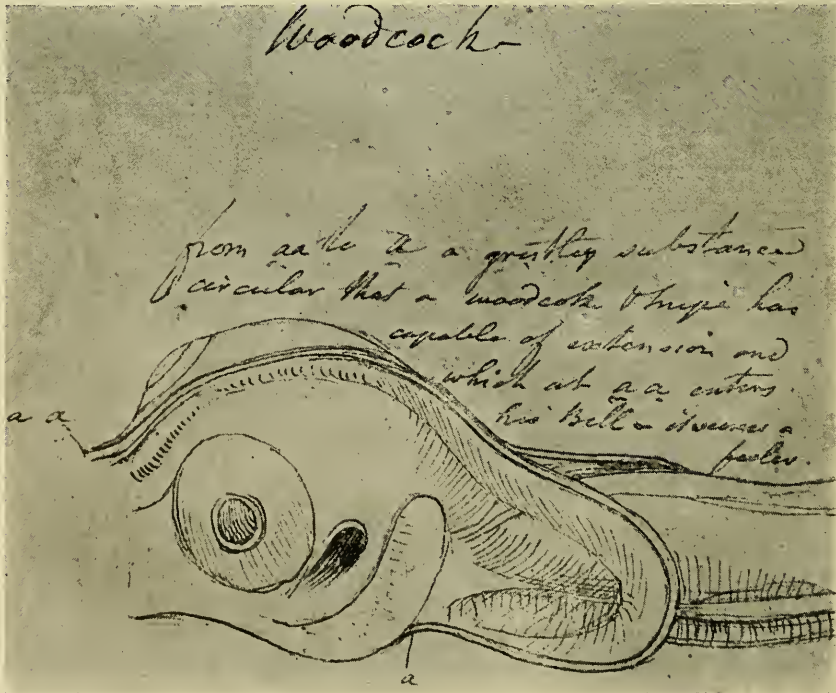 Woodcock
from aa to a a gristley substance
circular that a woodcock & snipe has
capable of extension and
which at aa enters
his Bill
a a
feeler.
a